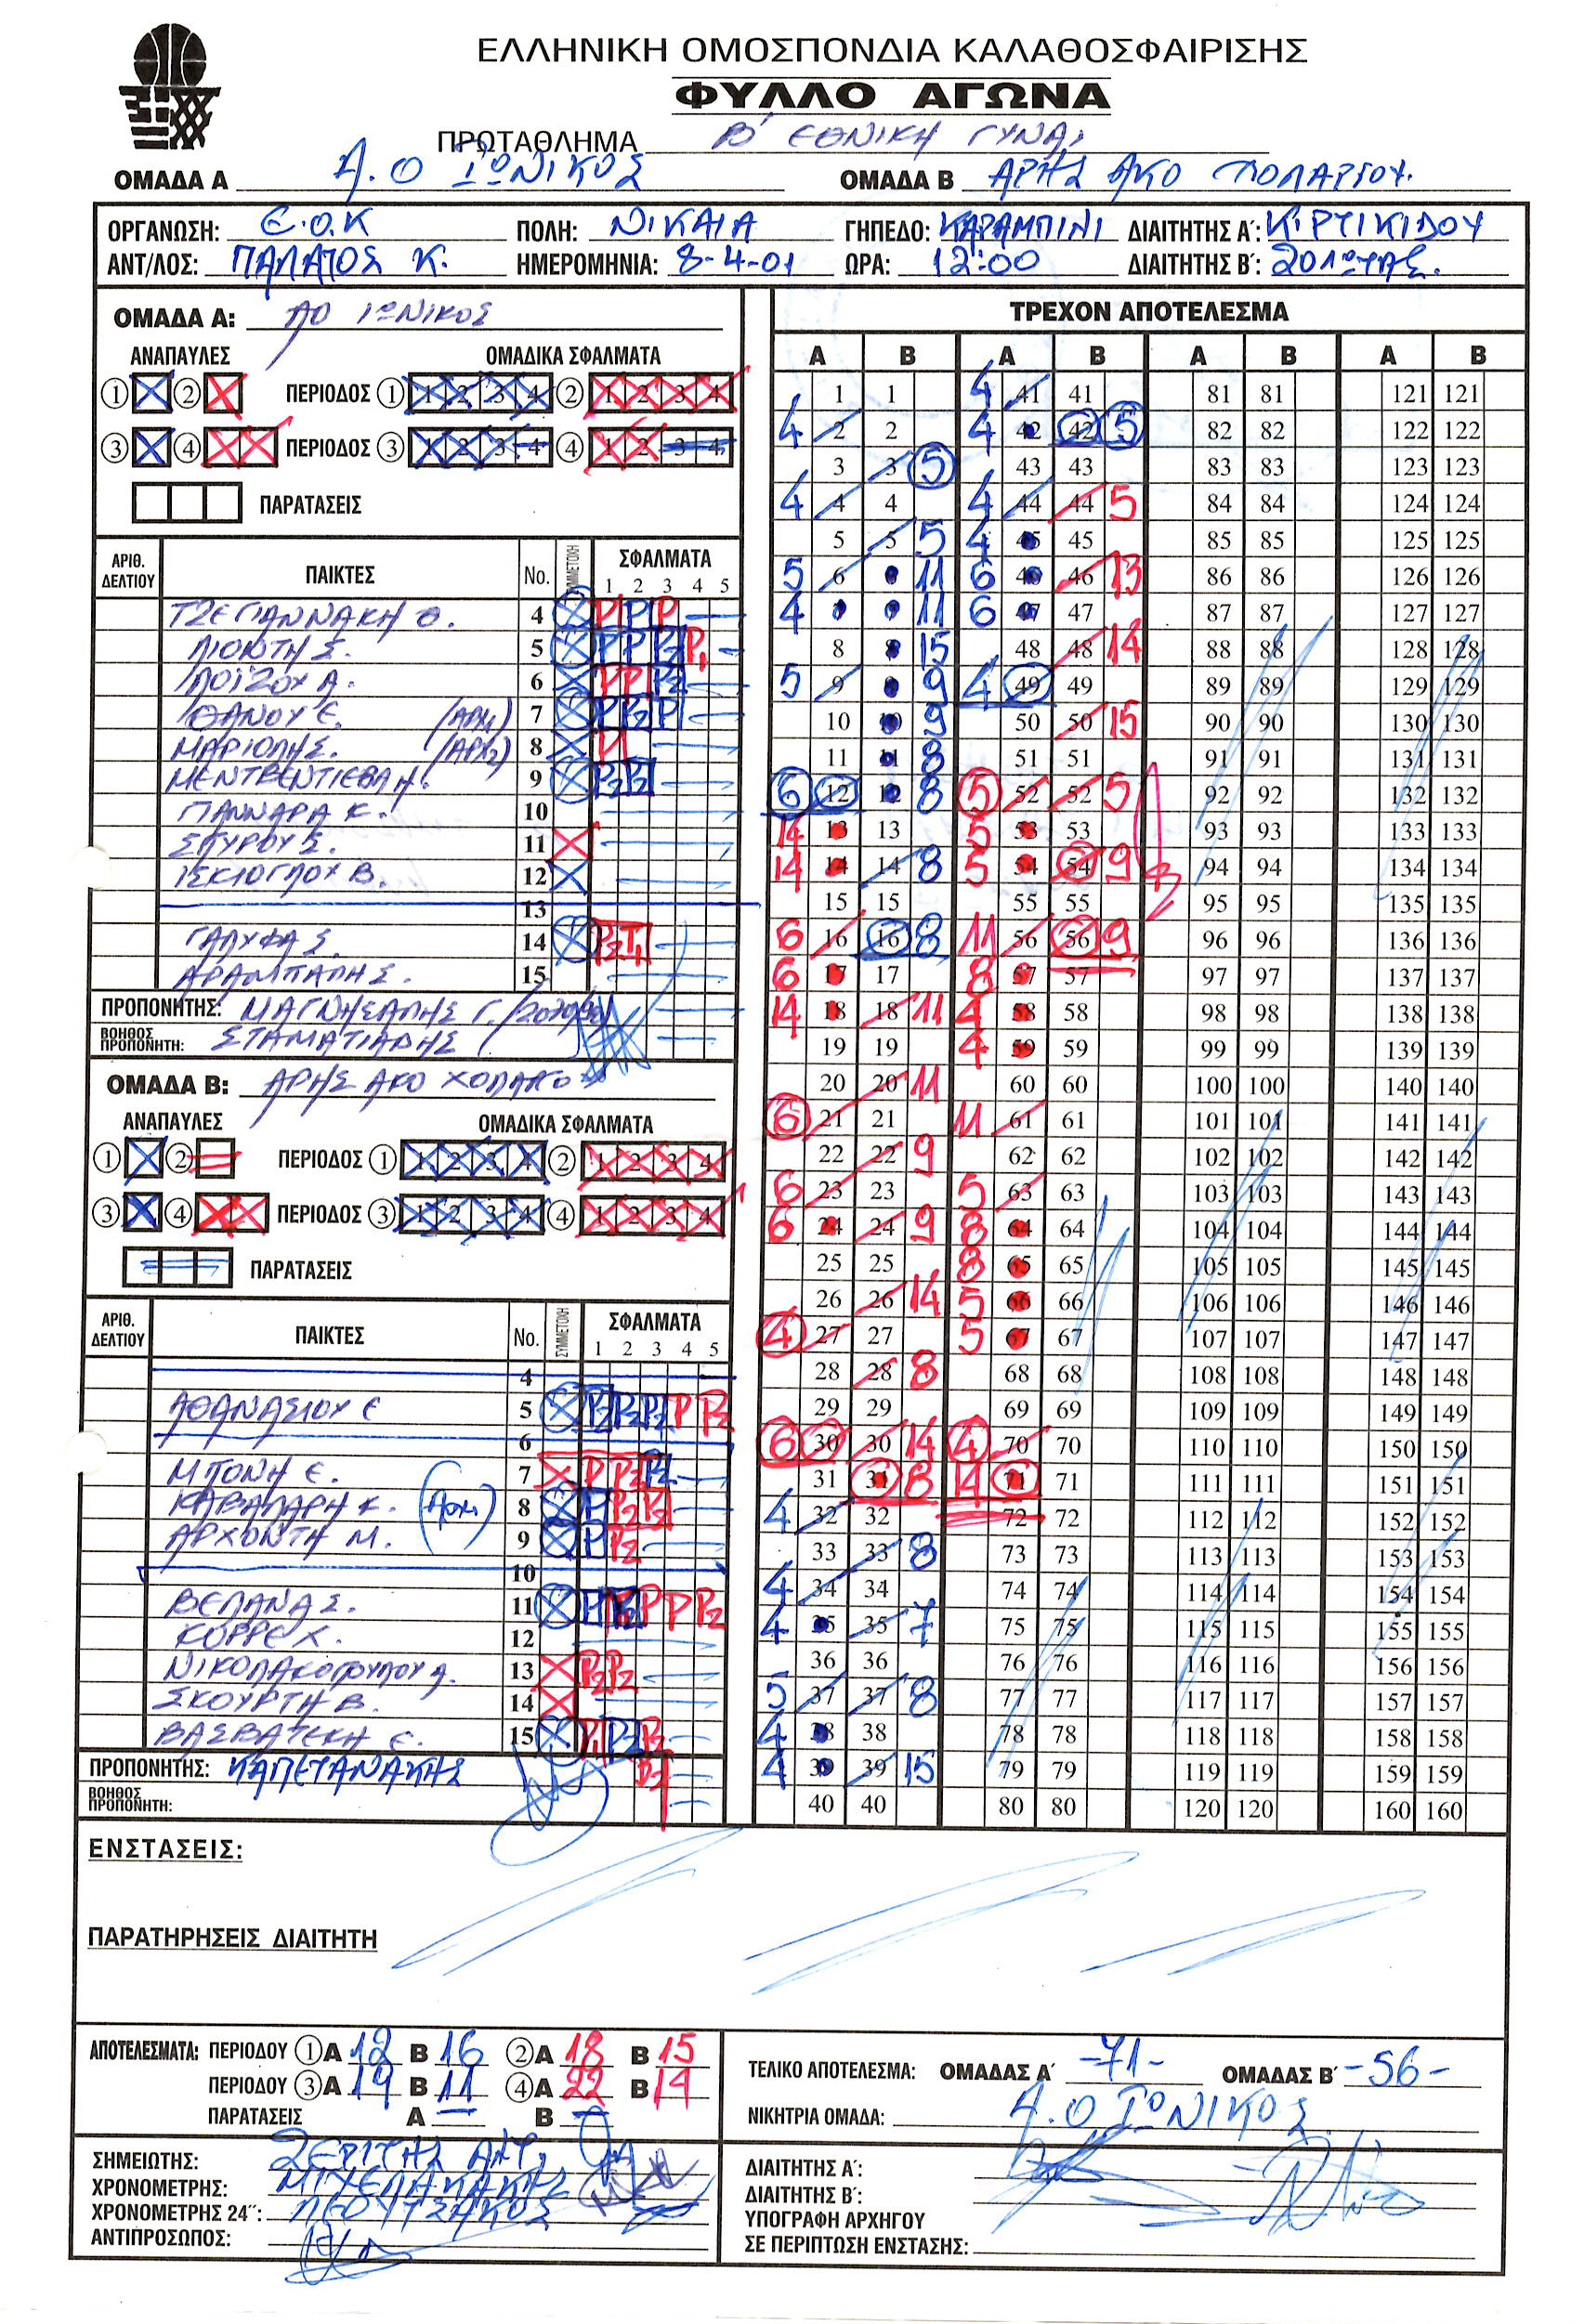 ΕΛΛΗΝΙΚΗ ΟΜΟΣΠΟΝΔΙΑ ΚΑΛΑΘΟΣΦΑΙΡΙΣΗΣ
ΦΥΛΛΟ ΑΓΩΝΑ
ΠΡΩΤΑΘΛΗΜΑ Β' ΕΘΝΙΚΗ ΓΥΝΑΙ.
ΟΜΑΔΑ Α Α.Ο ΙΩΝΙΚΟΣ ΟΜΑΔΑ Β ΑΡΗΣ ΑΚΟ ΧΟΛΑΡΓΟΥ.
ΟΡΓΑΝΩΣΗ: Ε.Ο.Κ ΠΟΛΗ: ΝΙΚΑΙΑ ΓΗΠΕΔΟ: ΚΑΡΑΜΠΙΝΙ ΔΙΑΙΤΗΤΗΣ Α΄: ΚΙΡΤΙΚΙΔΟΥ
ΑΝΤ/ΛΟΣ: Κ. ΗΜΕΡΟΜΗΝΙΑ: 8-4-01 ΩΡΑ: 12:00 ΔΙΑΙΤΗΤΗΣ Β΄: ΖΟΛΩΤΑΣ.
ΟΜΑΔΑ Α: ΑΟ ΙΩΝΙΚΟΣ
ΑΝΑΠΑΥΛΕΣ ΟΜΑΔΙΚΑ ΣΦΑΛΜΑΤΑ
① ② ΠΕΡΙΟΔΟΣ ① 1 2 3 4 ② 1 2 3 4
③ ④ ΠΕΡΙΟΔΟΣ ③ 1 2 3 4 ④ 1 2 3 4
ΠΑΡΑΤΑΣΕΙΣ
ΑΡΙΘ. ΔΕΛΤΙΟΥ ΠΑΙΚΤΕΣ No. ΣΥΜΜΕΤΟΧΗ ΣΦΑΛΜΑΤΑ
1 2 3 4 5
ΤΖΕΓΙΑΝΝΑΚΗ Θ. 4 P P P
ΛΙΟΝΤΗ Σ. 5 P P P2 P1
ΛΟΪΖΟΥ Α. 6 P P P2
ΘΑΝΟΥ Ε. (ΑΡΧ1) 7 P P2 P
ΜΑΡΙΟΛΗ Σ. (ΑΡΧ2) 8 P
ΜΕΝΤΒΕΝΤΙΕΒΑ Η. 9 P2 P2
ΓΙΑΝΝΑΡΑ Κ. 10
ΣΠΥΡΟΥ Σ. 11
ΙΣΚΙΟΓΛΟΥ Β. 12
13
ΓΑΛΥΦΑ Σ. 14 P2 T1
ΑΡΑΜΠΑΠΗ Σ. 15
ΠΡΟΠΟΝΗΤΗΣ: ΜΑΓΝΗΣΑΛΗΣ Γ.
ΒΟΗΘΟΣ ΠΡΟΠΟΝΗΤΗ: ΣΤΑΜΑΤΙΑΔΗΣ
ΟΜΑΔΑ Β: ΑΡΗΣ ΑΚΟ
ΑΝΑΠΑΥΛΕΣ ΟΜΑΔΙΚΑ ΣΦΑΛΜΑΤΑ
① ② ΠΕΡΙΟΔΟΣ ① 1 2 3 4 ② 1 2 3 4
③ ④ ΠΕΡΙΟΔΟΣ ③ 1 2 3 4 ④ 1 2 3 4
ΠΑΡΑΤΑΣΕΙΣ
ΑΡΙΘ. ΔΕΛΤΙΟΥ ΠΑΙΚΤΕΣ No. ΣΥΜΜΕΤΟΧΗ ΣΦΑΛΜΑΤΑ
1 2 3 4 5
4
ΑΘΑΝΑΣΙΟΥ Ε 5 P2 P2 P2 P P2
6
ΜΠΟΝΗ Ε. 7 P P2 P2
ΚΑΒΑΛΑΡΗ Κ. (Αρχ.) 8 P P2 P2
ΑΡΧΟΝΤΗ Μ. 9 P P2
10
ΒΕΛΑΝΑ Σ. 11 P P2 P P P2
ΚΟΡΡΕ Χ. 12
ΝΙΚΟΛΑΚΟΠΟΥΛΟΥ Α. 13 P2 P2
ΣΚΟΥΡΤΗ Β. 14
Ε. 15 P1 P2 P2
ΠΡΟΠΟΝΗΤΗΣ: ΚΑΠΕΤΑΝΑΚΗΣ
ΒΟΗΘΟΣ ΠΡΟΠΟΝΗΤΗ:
ΤΡΕΧΟΝ ΑΠΟΤΕΛΕΣΜΑ
Α Β Α Β Α Β Α Β
1 1 4 41 41 81 81 121 121
4 2 2 4 42 42 5 82 82 122 122
3 3 5 43 43 83 83 123 123
4 4 4 4 44 44 5 84 84 124 124
5 5 5 4 45 45 85 85 125 125
5 6 6 11 6 46 46 13 86 86 126 126
4 7 7 11 6 47 47 87 87 127 127
8 8 15 48 48 14 88 88 128 128
5 9 9 9 4 49 49 89 89 129 129
10 10 9 50 50 15 90 90 130 130
11 11 8 51 51 91 91 131 131
6 12 12 8 5 52 52 5 92 92 132 132
14 13 13 5 53 53 93 93 133 133
14 14 14 8 5 54 54 9 94 94 134 134
15 15 55 55 95 95 135 135
6 16 16 8 11 56 56 9 96 96 136 136
6 17 17 8 57 57 97 97 137 137
14 18 18 11 4 58 58 98 98 138 138
19 19 4 59 59 99 99 139 139
20 20 11 60 60 100 100 140 140
6 21 21 11 61 61 101 101 141 141
22 22 9 62 62 102 102 142 142
6 23 23 5 63 63 103 103 143 143
6 24 24 9 8 64 64 104 104 144 144
25 25 8 65 65 105 105 145 145
26 26 14 5 66 66 106 106 146 146
4 27 27 5 67 67 107 107 147 147
28 28 8 68 68 108 108 148 148
29 29 69 69 109 109 149 149
6 30 30 14 4 70 70 110 110 150 150
31 31 8 14 71 71 111 111 151 151
4 32 32 72 72 112 112 152 152
33 33 8 73 73 113 113 153 153
4 34 34 74 74 114 114 154 154
4 35 35 7 75 75 115 115 155 155
36 36 76 76 116 116 156 156
5 37 37 8 77 77 117 117 157 157
4 38 38 78 78 118 118 158 158
4 39 39 15 79 79 119 119 159 159
40 40 80 80 120 120 160 160
ΕΝΣΤΑΣΕΙΣ:
ΠΑΡΑΤΗΡΗΣΕΙΣ ΔΙΑΙΤΗΤΗ
ΑΠΟΤΕΛΕΣΜΑΤΑ: ΠΕΡΙΟΔΟΥ ① Α 12 Β 16 ② Α 18 Β 15
ΠΕΡΙΟΔΟΥ ③ Α 19 Β 11 ④ Α 22 Β 14
ΠΑΡΑΤΑΣΕΙΣ Α — Β —
ΤΕΛΙΚΟ ΑΠΟΤΕΛΕΣΜΑ: ΟΜΑΔΑΣ Α΄ -71- ΟΜΑΔΑΣ Β΄ -56-
ΝΙΚΗΤΡΙΑ ΟΜΑΔΑ: Α.Ο ΙΩΝΙΚΟΣ
ΣΗΜΕΙΩΤΗΣ:
ΧΡΟΝΟΜΕΤΡΗΣ: ΜΙΧΕΛΑΚΑΚΗΣ
ΧΡΟΝΟΜΕΤΡΗΣ 24΄΄:
ΑΝΤΙΠΡΟΣΩΠΟΣ:
ΔΙΑΙΤΗΤΗΣ Α΄:
ΔΙΑΙΤΗΤΗΣ Β΄:
ΥΠΟΓΡΑΦΗ ΑΡΧΗΓΟΥ
ΣΕ ΠΕΡΙΠΤΩΣΗ ΕΝΣΤΑΣΗΣ: